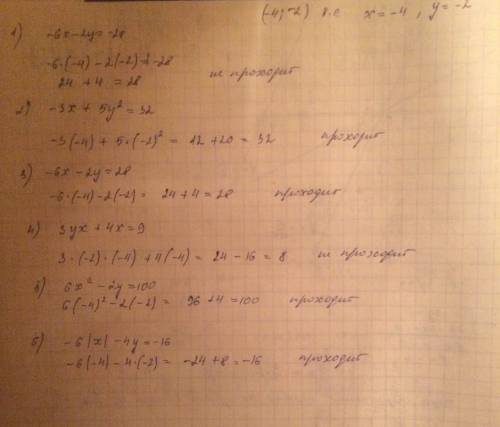 (-4; -2) т.е. x = -4, y = -2
1) -6x-2y=-28
-6·(-4)-2(-2)=-28
24 + 4 = 28 не проходит
2) -3x + 5y² = 32
-3(-4) + 5·(-2)² = 12+20 = 32 проходит
3) -6x-2y=28
-6·(-4)-2(-2)= 24+4=28 проходит
4) 3yx + 4x = 9
3·(-2)·(-4) + 4(-4) = 24-16 = 8 не проходит
6x² - 2y=100
6(-4)² - 2(-2) = 96+4=100 проходит
-6|x| - 4y = -16
-6|-4| - 4·(-2) = -24+8 = -16 проходит